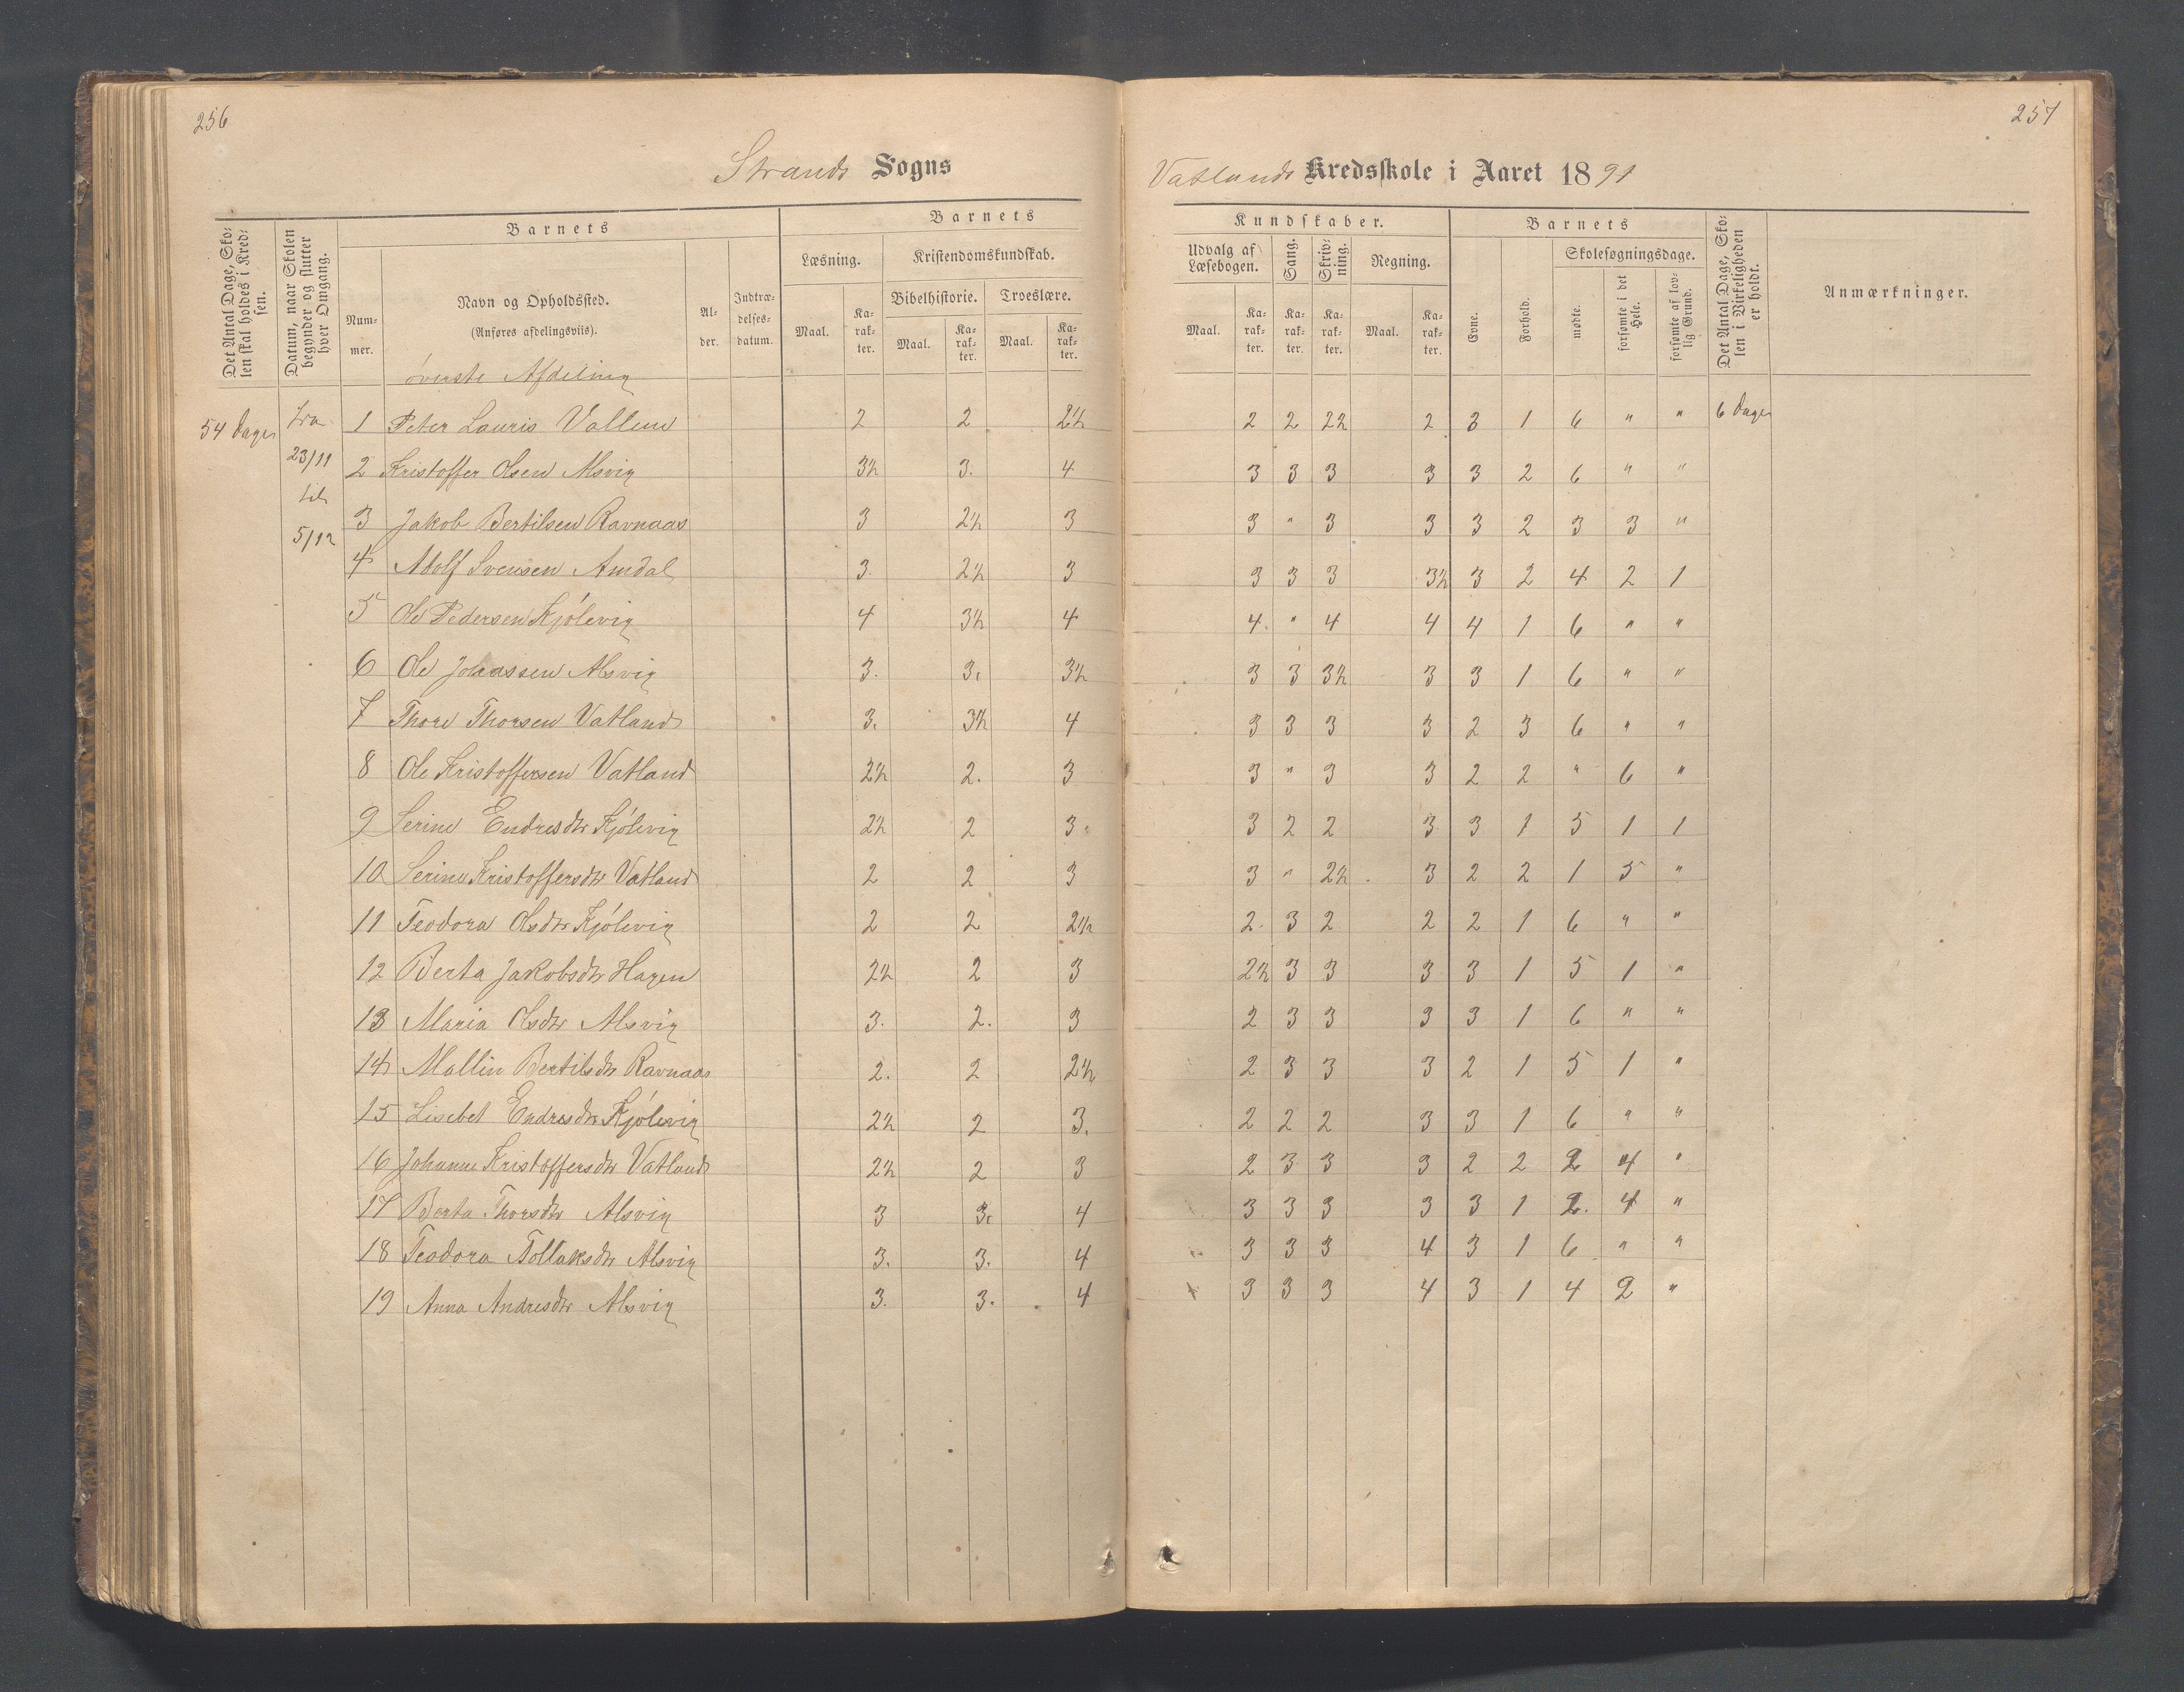 256
257
Strands Sogns
Vatlands Kredsskole i Aaret 1891
Det Antal Dage, Skolen skal holdes i Kredsen.
Datum, naar Skolen begynder og slutter hver Omgang.
Barnets
Nummer.
Navn og Opholdssted.
(Anføres afdelingsviis).
Alder.
Indtrædelsesdatum.
Barnets
Læsning.
Kristendomskundskab.
Maal.
Karakter.
Bibelhistorie.
Troeslære.
Maal.
Karakter.
Maal.
Karakter.
Kundskaber.
Udvalg af Læsebogen.
Sang.
Skrivning.
Regning.
Maal.
Karakter.
Karakter.
Karakter.
Maal.
Karakter.
Barnets
Evne.
Forhold.
Skolesøgningsdage.
mødte.
forsømte i det Hele.
forsømte af lovlig Grund.
Det Antal Dage, Skolen i Virkeligheden er holdt.
Anmærkninger.
øverste Afdeling
54 dage fra 23/11 til 5/12
6 dage
1 Peter Lauris Vallem 2 2 2½ 2 2 2½ 2 3 1 6 " "
2 Kristoffer Olsen Alsvig 3½ 3. 4 3 3 3 3 3 2 6 " "
3 Jakob Bertilsen Ravnaas 3 2½ 3 3 " 3 3 3 2 3 3 "
4 Adolf Svensen Amdal 3. 2½ 3 3 3 3 3½ 3 2 4 2 1
5 Ole Pedersen Kjölevig 4 3½ 4 4. " 4 4 4 1 6 " "
6 Ole Johassen Alsvig 3. 3. 3½ 3 3 3½ 3 3 1 6 " "
7 Thore Thorsen Vatland 3. 3½ 4 3 3 3 3 2 3 6 " "
8 Ole Kristoffersen Vatland 2½ 2. 3 3 " 3 3 2 2 " 6 "
9 Serine Endresdtr Kjölevig 2½ 2 3. 3 2 2 3 3 1 5 1 1
10 Serine Kristoffersdtr Vatland 2 2 3 3 " 2½ 3 2 2 1 5 "
11 Teodora Olsdtr Kjölevig 2 2 2½ 2. 3 2 2 2 1 6 " "
12 Berta Jakobsdtr Hagen 2½ 2 3 2½ 3 3 3 3 1 5 1 "
13 Maria Olsdtr Alsvig 3. 2. 3 2 3 3 3 3 1 6 " "
14 Mallin Bertilsdtr Ravnaas 2. 2 2½ 2 3 3 3 2 1 5 1 "
15 Lisebet Endresdtr Kjölevig 2½ 2 3. 2 2 2 3 3 1 6 " "
16 Johanne Kristoffersdtr Vatland 2½ 2 3 2 3 3 3 2 2 2 4 "
17 Berta Thorsdtr Alsvig 3 3. 4 3 3 3 3 3 1 2. 4 "
18 Teodora Tollaksdtr Alsvig 3. 3. 4 3 3 3 4 3 1 6 " "
19 Anna Andresdtr Alsvig 3. 3. 4 3 3 3 4 3 1 4 2 "